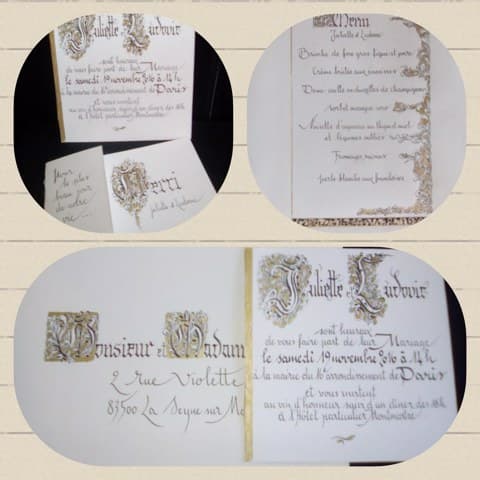 Juliette & Ludovic
sont heureux
de vous faire part de leur Mariage
le samedi 19 novembre 2016 à 14h
à la mairie du 16e arrondissement de Paris
et vous invitent
au vin d'honneur suivi d'un dîner dès 18h
à l'Hôtel particulier Montmartre
Pour
le plus
beau jour
de notre
vie
Merci
Juliette & Ludovic
Menu
Juliette & Ludovic
Brioche de foie gras figue et poire
Crème brûlée aux
Demi caille en duxelles de champignons
sorbet mangue
Noisette d'agneau au thym et miel
et légumes oubliés
Fromages
perle blanche aux framboises
Monsieur et Madam
2 rue Violette
83500 La Seyne sur Me
Juliette & Ludovic
sont heureux
de vous faire part de leur Mariage
le samedi 19 novembre 2016 à 14h
à la mairie du 16e arrondissement de Paris
et vous invitent
au vin d'honneur suivi d'un dîner dès 18h
à l'Hôtel particulier Montmartre